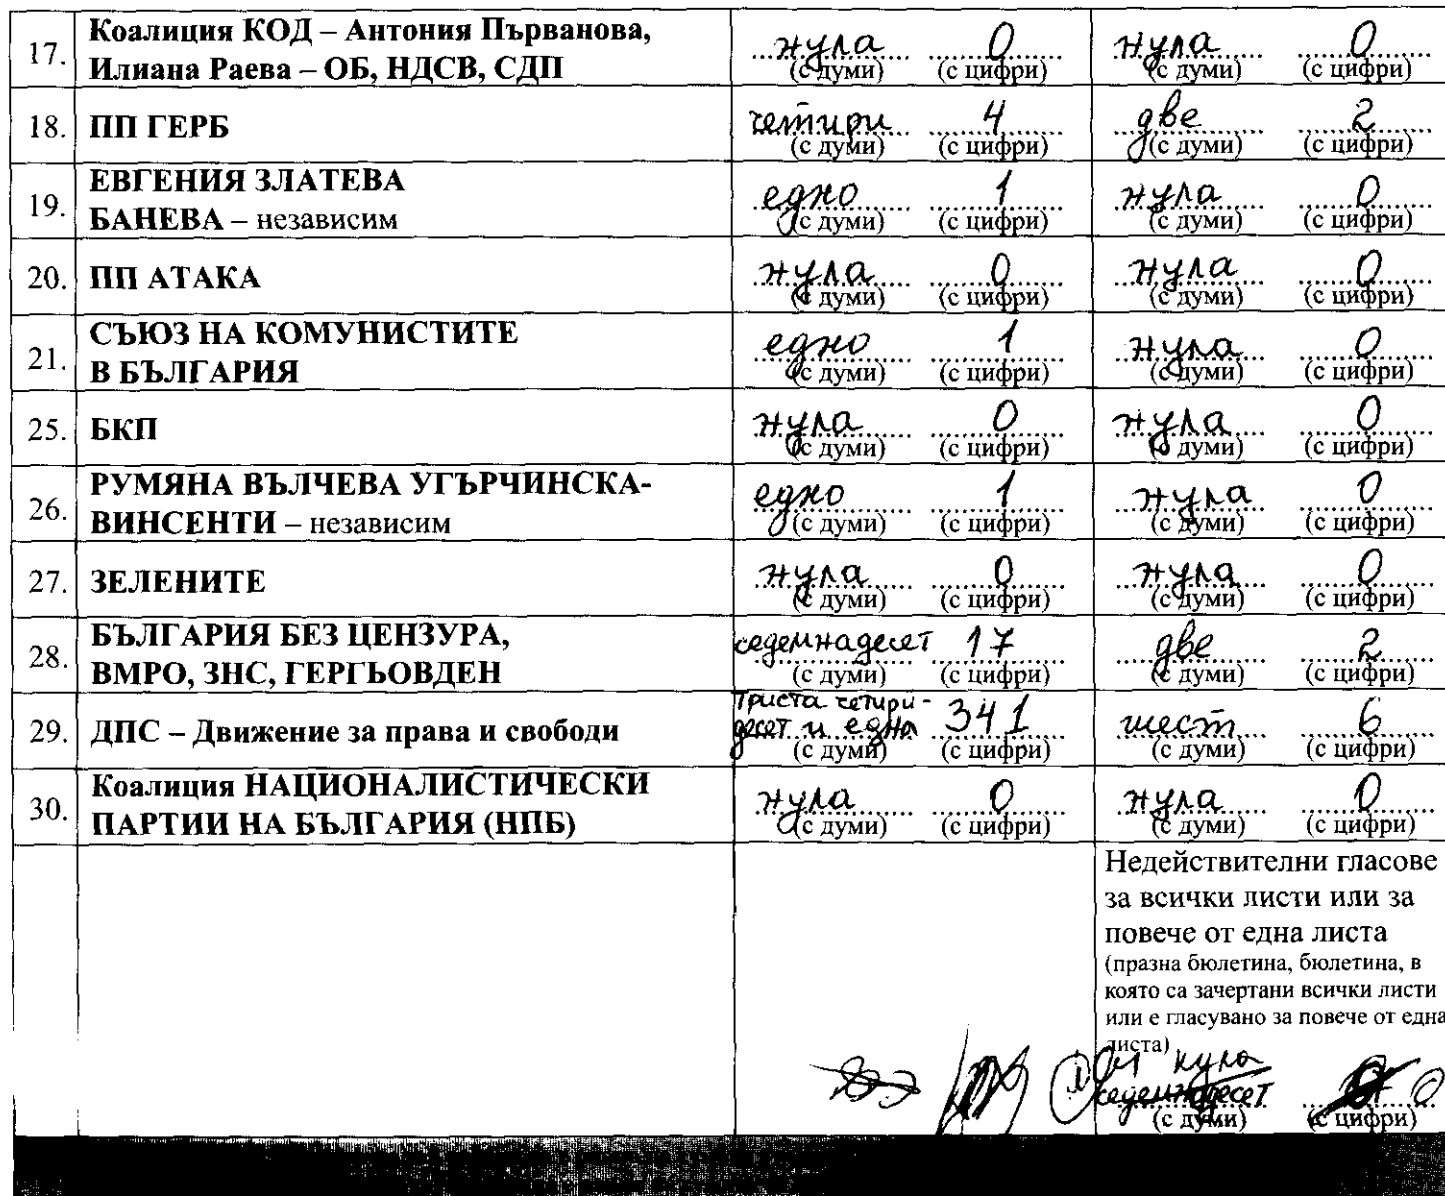 17. Коалиция КОД – Антония Първанова,
Илиана Раева – ОБ, НДСВ, СДП
нула 0 нула 0
(с думи) (с цифри) (с думи) (с цифри)
18. ПП ГЕРБ
четири 4 две 2
(с думи) (с цифри) (с думи) (с цифри)
19. ЕВГЕНИЯ ЗЛАТЕВА
БАНЕВА – независим
едно 1 нула 0
(с думи) (с цифри) (с думи) (с цифри)
20. ПП АТАКА
нула 0 нула 0
(с думи) (с цифри) (с думи) (с цифри)
21. СЪЮЗ НА КОМУНИСТИТЕ
В БЪЛГАРИЯ
едно 1 нула 0
(с думи) (с цифри) (с думи) (с цифри)
25. БКП
нула 0 нула 0
(с думи) (с цифри) (с думи) (с цифри)
26. РУМЯНА ВЪЛЧЕВА УГЪРЧИНСКА-
ВИНСЕНТИ – независим
едно 1 нула 0
(с думи) (с цифри) (с думи) (с цифри)
27. ЗЕЛЕНИТЕ
нула 0 нула 0
(с думи) (с цифри) (с думи) (с цифри)
28. БЪЛГАРИЯ БЕЗ ЦЕНЗУРА,
ВМРО, ЗНС, ГЕРГЬОВДЕН
седемнадесет 17 две 2
(с думи) (с цифри) (с думи) (с цифри)
29. ДПС – Движение за права и свободи
Триста четири-
десет и една 341 шест 6
(с думи) (с цифри) (с думи) (с цифри)
30. Коалиция НАЦИОНАЛИСТИЧЕСКИ
ПАРТИИ НА БЪЛГАРИЯ (НПБ)
нула 0 нула 0
(с думи) (с цифри) (с думи) (с цифри)
Недействителни гласове
за всички листи или за
повече от една листа
(празна бюлетина, бюлетина, в
която са зачертани всички листи
или е гласувано за повече от една
листа)
нула
седемнадесет 0
(с думи) (с цифри)